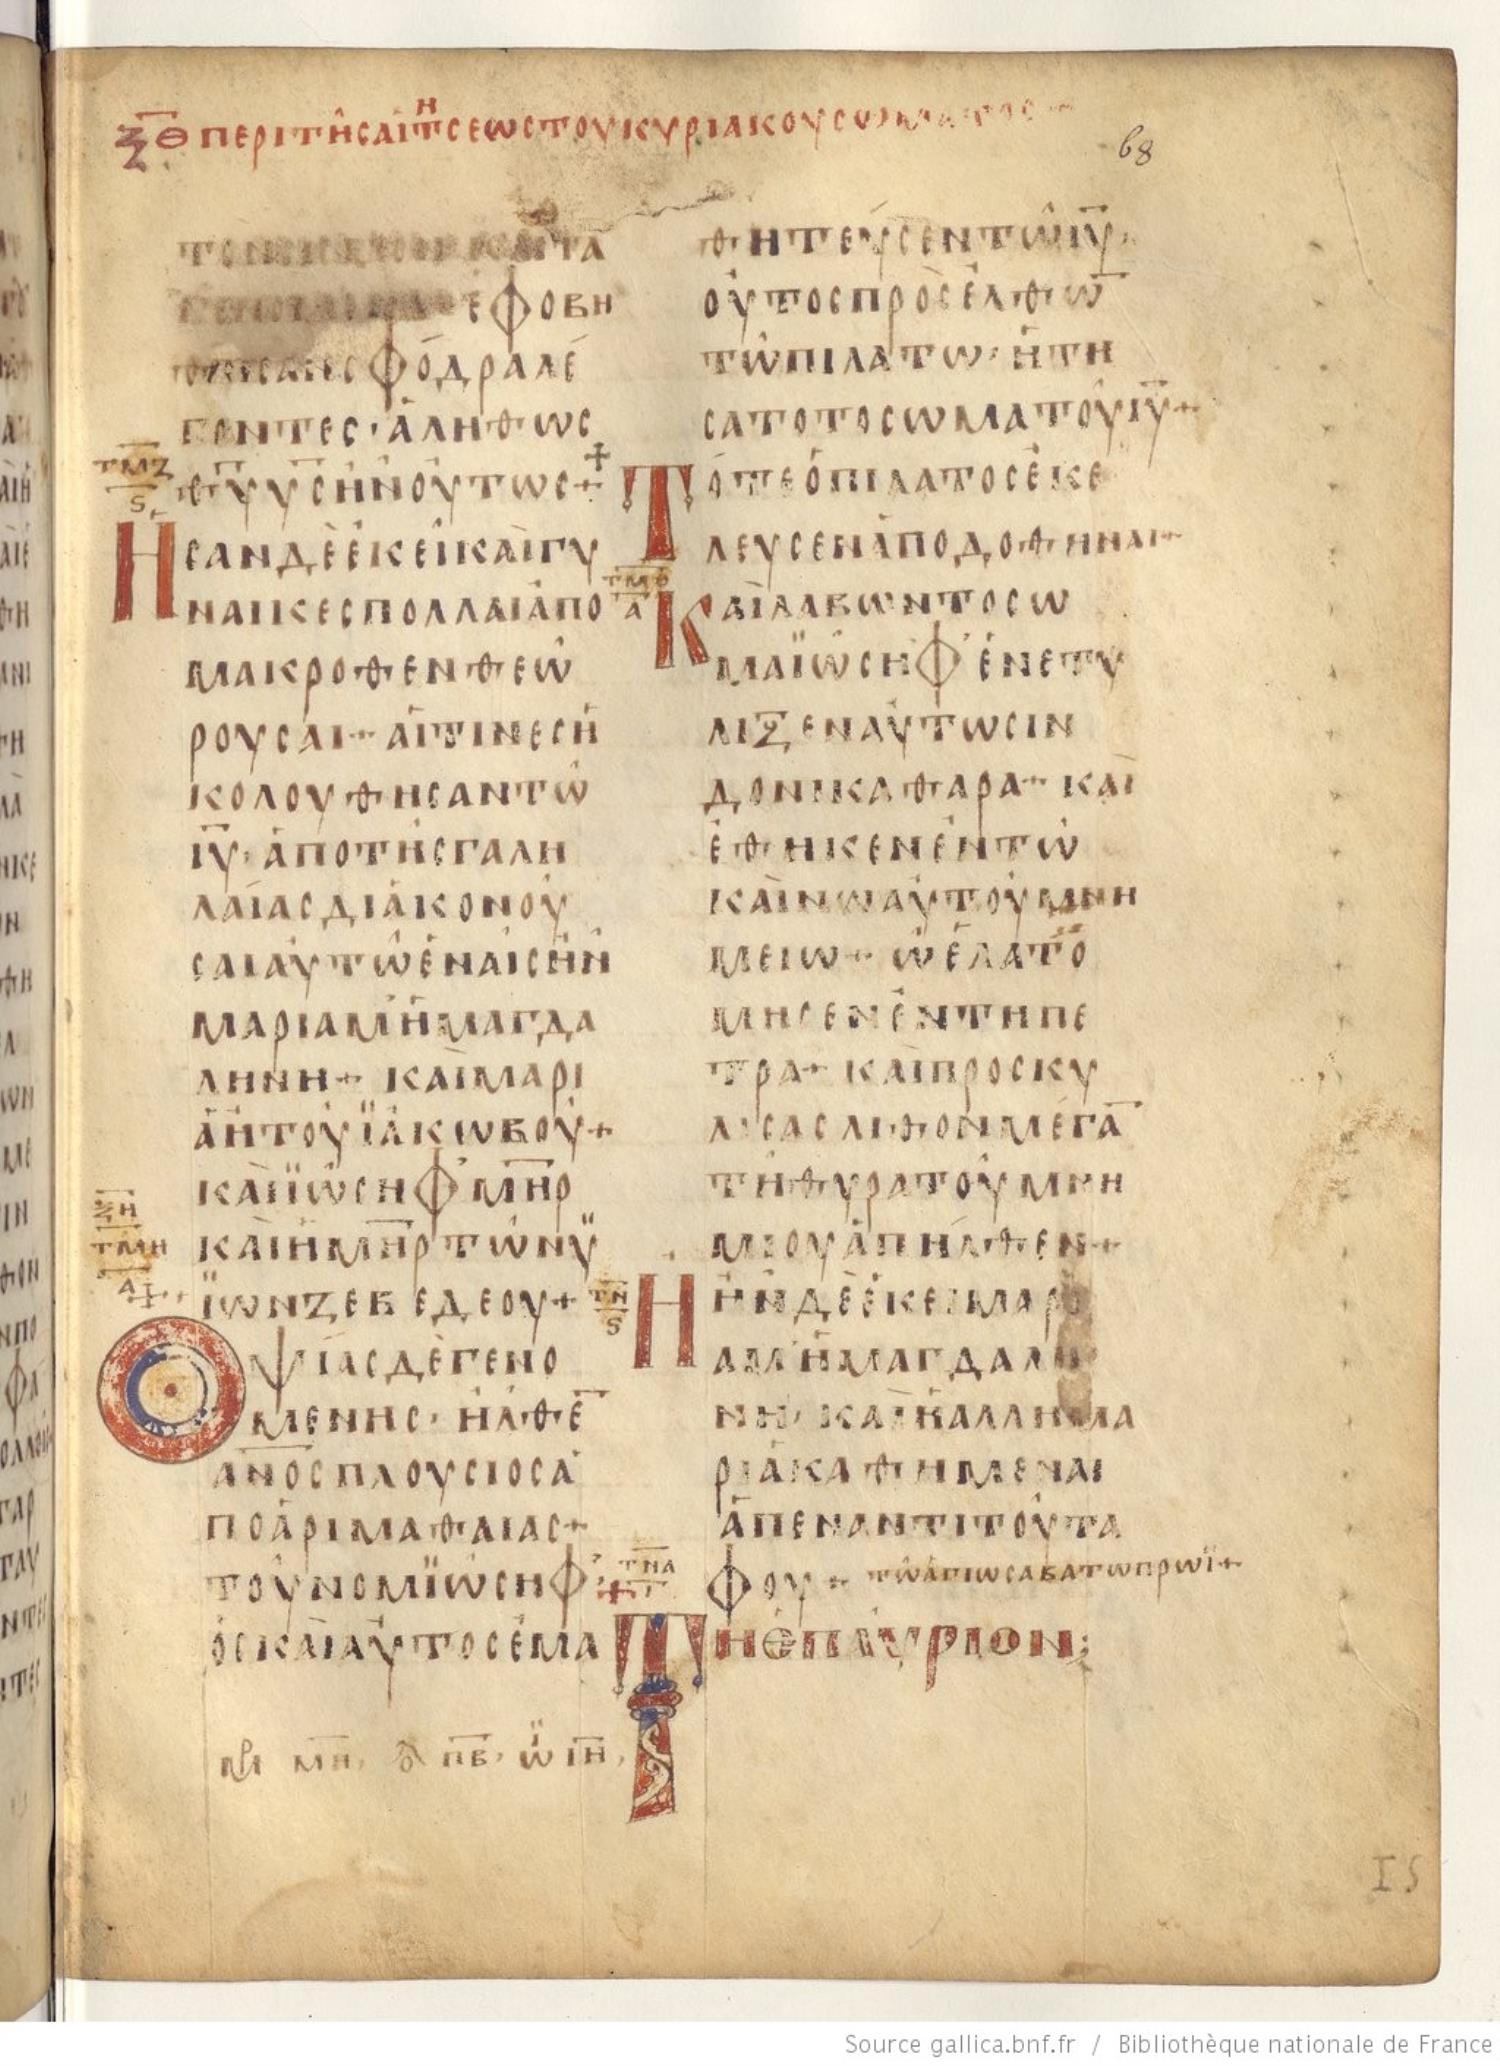 ξθ περι της αιτησεως του κυριακου σωματος
68
τα
εφοβη
σφόδρα λέ
γοντες · ἀληθως
τμζ
ς
θ̅υ̅ υ̅ς̅ ἦν οὗτως +
Ησαν δὲ ἐκεῖ καὶ γυ
ναικες πολλαι ἀπο
μακροθεν θεω
ρουσαι + αἵτινες ἠ
κολουθησαν τῶ
ι̅υ̅ · ἀπο τῆς γαλη
λαίας διακονου
σαι αὐτῶ ἐν αἷς ἦν
μαριαμ ἡ μαγδα
ληνη + καὶ μαρι
ὰ ἡ τοῦ ϊακωβου +
καὶ ϊωσηφ μ̅η̅ρ
καὶ ἡ μ̅η̅ρ τῶν ϋ
ϊων ζεβεδεου +
ξη
τμη
α
Οψίας δὲ γενο
μενης · ἦλθε̅
α̅ν̅ο̅ς πλουσιος ἀ
πο ἀριμαθαιας +
τοὔνομ ϊωσηφ
ὃς καὶ αὐτος ἐμα
θητευσεν τῶ ι̅υ̅ ·
οὗτος προσελθω̅
τῶ πιλατω · ἠτη
σατο το σωμα τοῦ ι̅υ̅ +
Τότε ὁ πιλατος ἐκε
λευσεν ἀποδοθηναι +
τμθ
α
Καὶ λαβων το σω
μα ϊωσηφ ἐνετυ
λιξεν αὐτω σιν
δονι καθαρα + καὶ
ἐθηκεν ἐν τῶ
καινω αὐτοῦ μνη
μειω + ὧ ἐλατο
μησεν ἐν τη πε
τρα + καὶ προσκυ
λισας λιθον μέγα̅
τῆ θυρα τοῦ μνη
μιου ἀπῆλθεν +
τν
ς
Ηἦν δὲ ἐκει μαρι
αμ ἡ μαγδαλη
νη · καὶ ἡ ἀλλη μα
ρία καθημεναι
ἀπεναντι τοῦ τα
φου + τῶ ἁγιω σαβατω πρωϊ +
τνα
Τῆ ἐπαύριον :
μη · πβ · ιη ·
IS
Source gallica.bnf.fr / Bibliothèque nationale de France